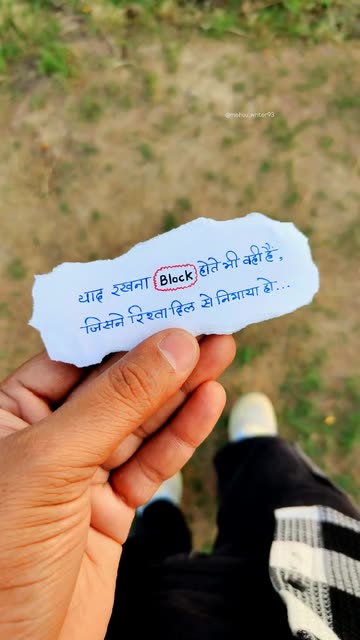 @mehar_writer93
याद रखना Block होते भी वही हैं,
जिसने रिश्ता दिल से निभाया हो...